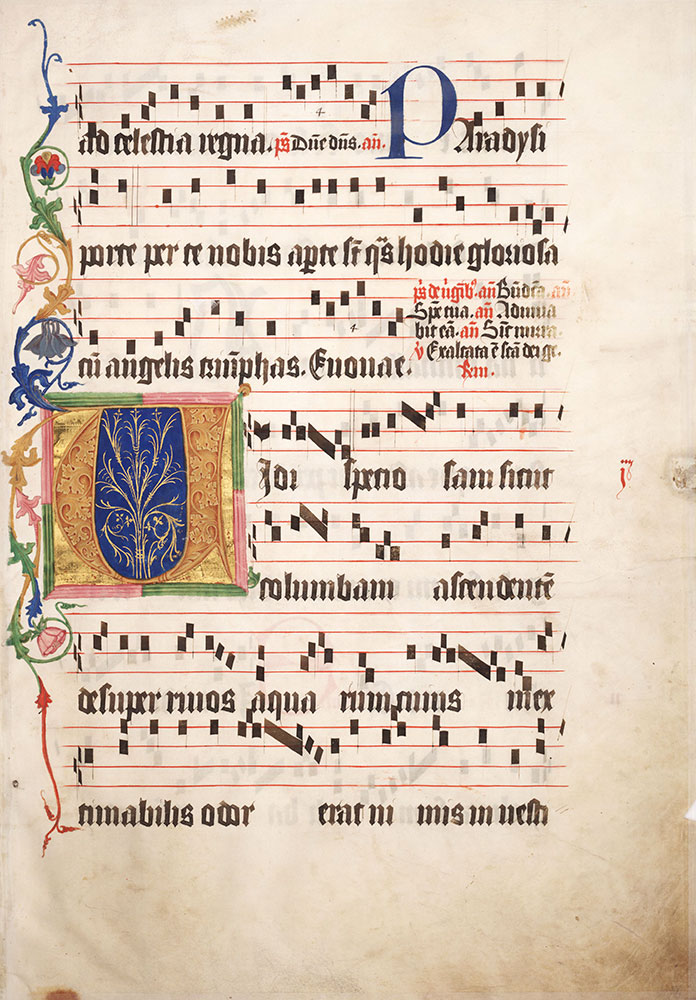 ad celestia regna. ps Dne dns. an. Paradysi
porte per te nobis apte st qs hodie gloriosa
cu angelis triuphas. Euouae.
an
Spe tua. an Adiuua
bit ea. an
v Exaltata e sca dei ge.
Rm.
Vidi specio sam sicut
columbam ascendente
desuper riuos aqua rum cuius inex
timabilis odor erat ni mis in vesti